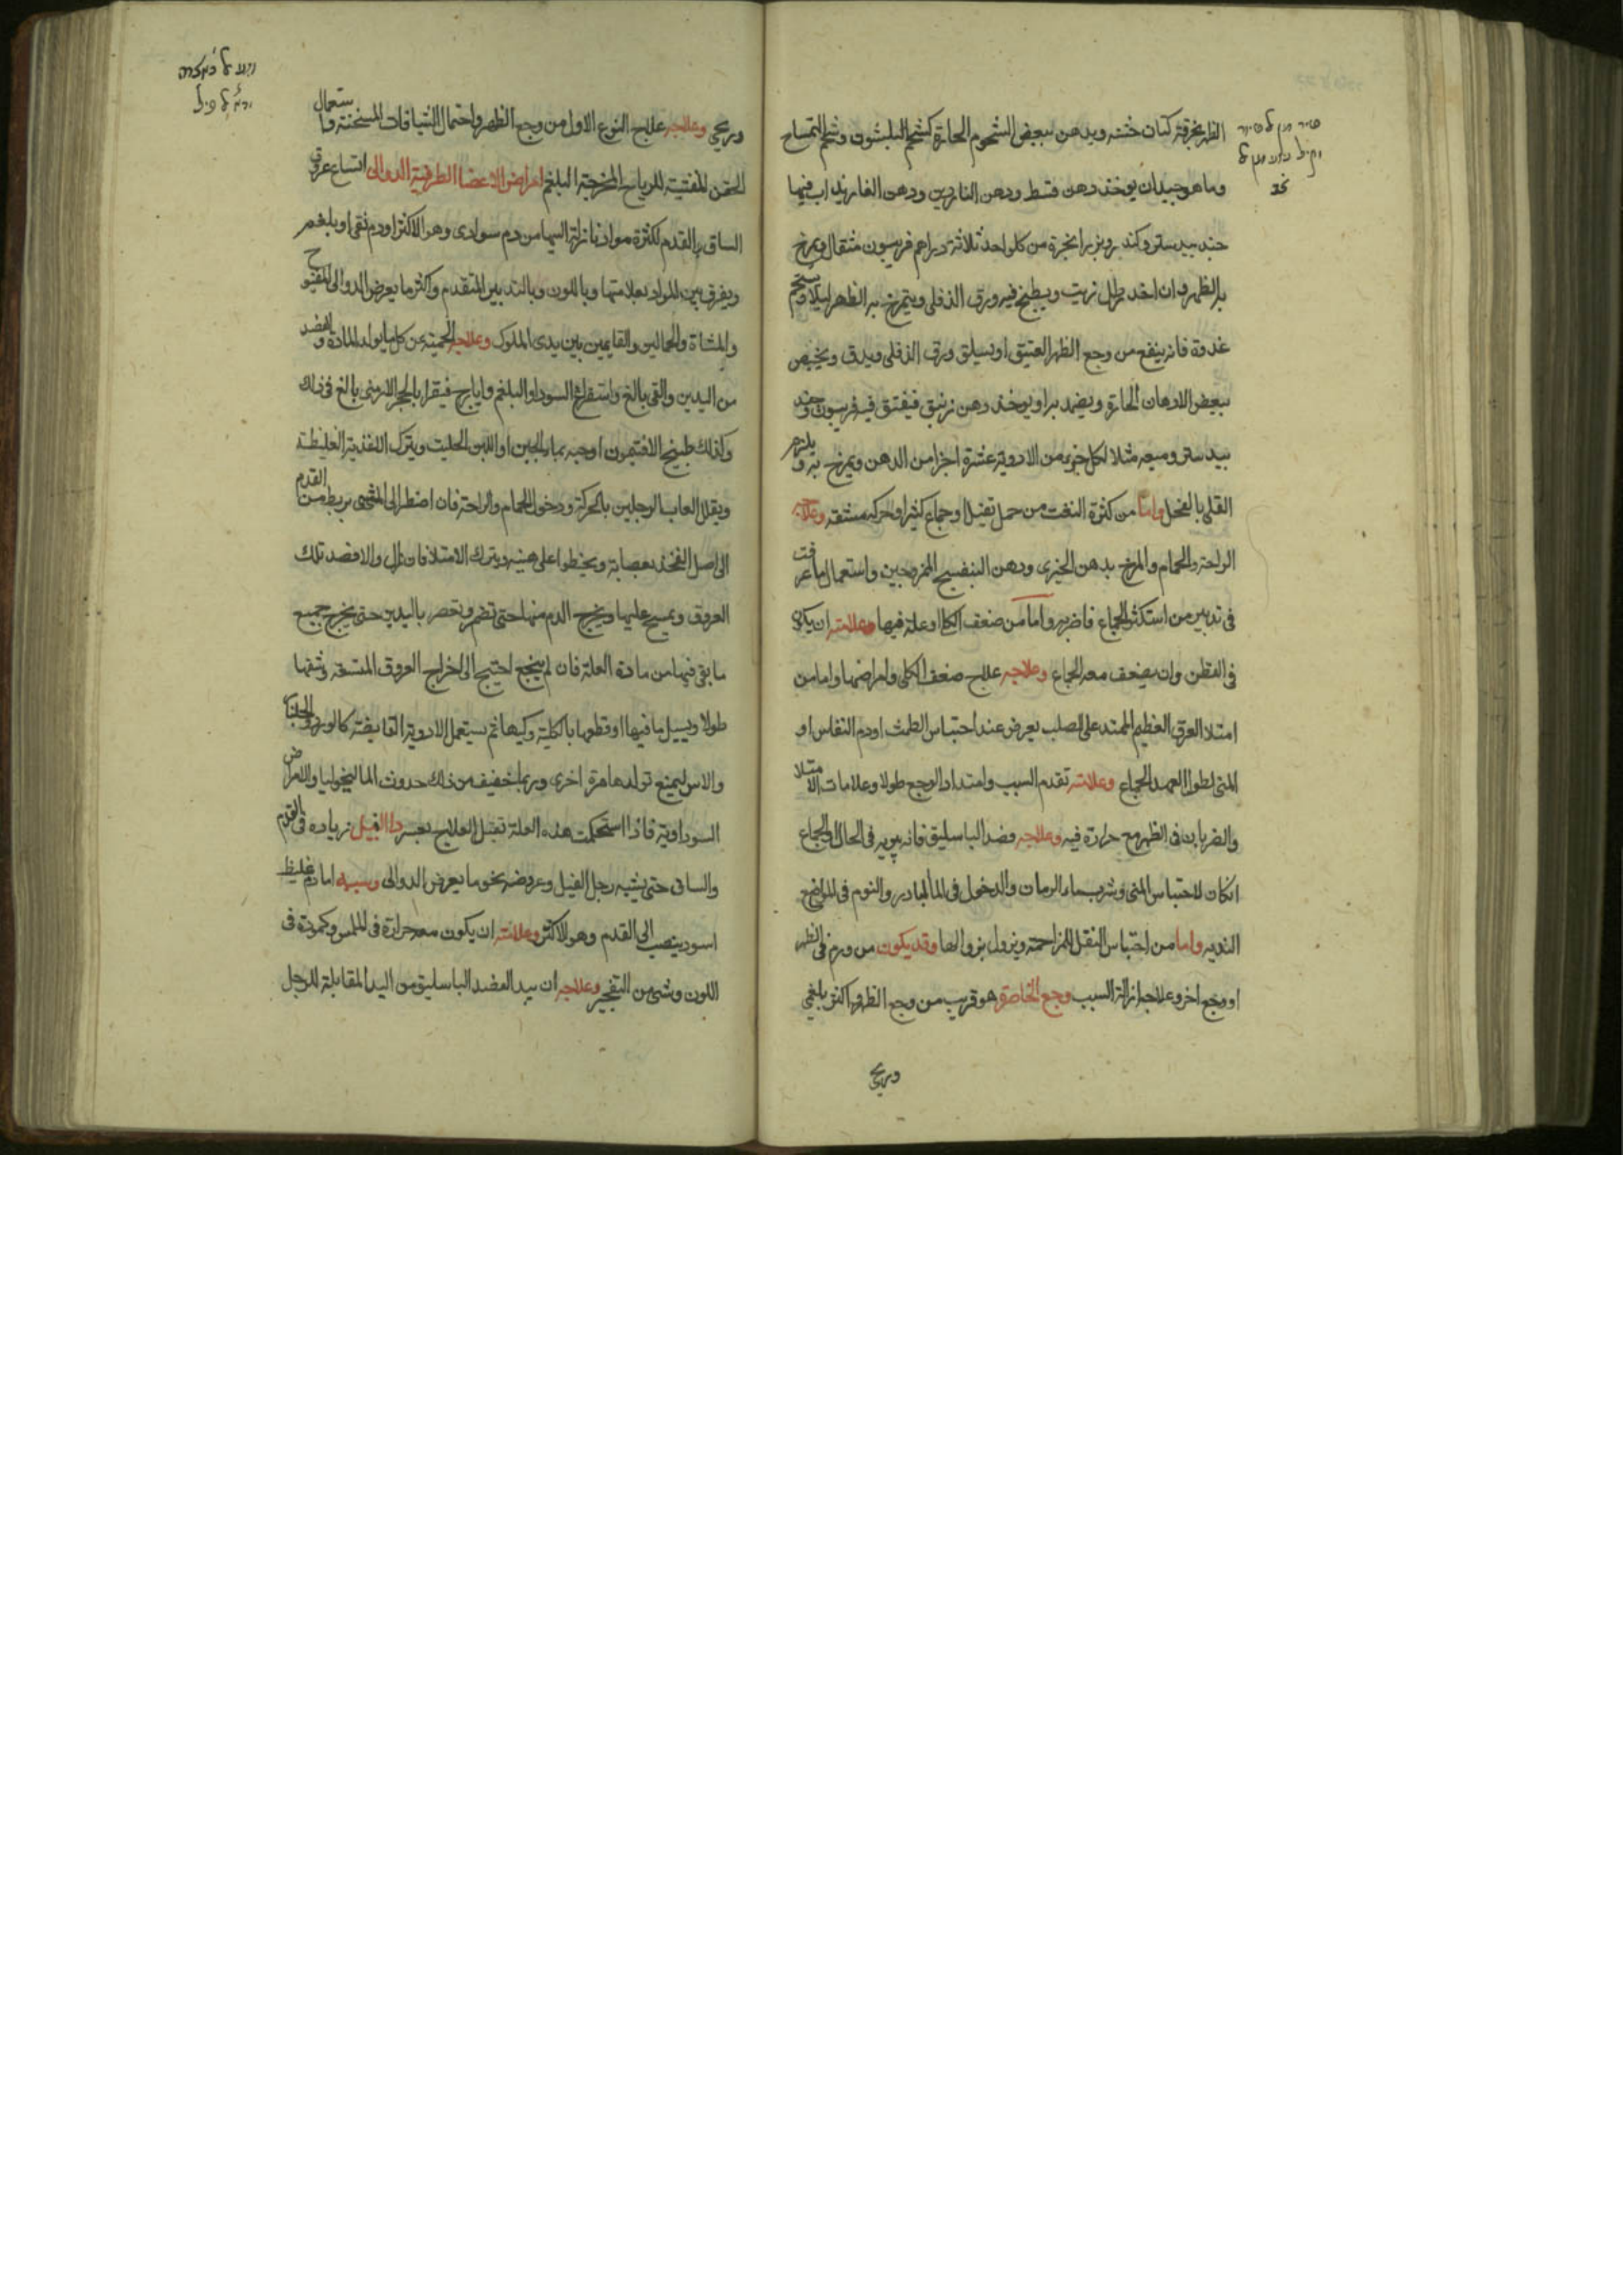 الظهر بخرقة كتان خشنه ويدهن ببعض الشحوم الحارة كشحم البلشون وشحم التمساح
ومما هو جيد ان يوخذ دهن قسط ودهن الناردين ودهن الغار يذاب فيها
جند بيدستر وكندر وبزر انجرة من كل واحد ثلاثة دراهم فربيون مثقال ويمرخ
به الظهر وان اخذ رطل زيت ويطبخ فيه ورق الدفلى ويتمرخ به الظهر ليلا ويستحم
غدوة فانه ينفع من وجع الظهر العتيق او يسلق ورق الدفلى ويدق ويخبص
ببعض الادهان الحارة ويضمد به او يوخذ دهن زنبق فيفتق فيه فربيون وجند
بيدستر وميعه مثلا لكل جزء من الادوية عشرة اجزا من الدهن ويمرخ به ويلزم
القلى بالفجل واما من كثرة التعب من حمل ثقيل او جماع كثير او حركه مشقه وعلاجه
الراحة والحمام والمرخ بدهن الخيرى ودهن البنفسج الممزوجين واستعمال ما عرفت
فى تدبير من استكثر الجماع فاضر به واما من ضعف الكلا او علة فيها وعلامته ان يكون
فى القطن وان يضعف معه الجماع وعلاجه علاج ضعف الكلى وامراضها واما من
امتلا العرق العظيم الممتد على الصلب يعرض عند احتباس الطمث او دم النفاس او
المنى لطول العهد بالجماع وعلامته تقدم السبب وامتداد الوجع طولا وعلامات الامتلا
والضربان فى الظهر مع حرارة فيه وعلاجه فصد الباسليق فانه يبريه فى الحال والجماع
ان كان لاحتباس المنى وشرب ماء الرمان والدخول فى الما البارد والنوم فى المواضع
النديه واما من احتباس الثقل المزاحمة ويزول بزوالها وقد يكون من ورم فى الظهر
او وجع اخر وعلاجه ازالة السبب وجع الخاصرة هو قريب من وجع الظهر واكثره بلغمى
وريحى
وريحى وعلاجه علاج النوع الاول من وجع الظهر واحتمال الشيافات المسخنة واستعمال
الحقن المفشية للرياح المخرجة البلغم امراض الاعضا الطرفية الدوالى اتساع عرق
الساق والقدم لكثرة مواد نازلة اليها من دم سوادى وهو الاكثر او دم نقى او بلغم
ويفرق بين المواد بعلامتها وباللون وبالتدبير المتقدم واكثر ما يعرض الدوالى للفيوح
والمشاة والحمالين والقايمين بين يدى الملوك وعلاجه الحمية عن كل ما يولد المادة والفصد
من اليدين والقى بالغ واستفراغ السودا والبلغم وايارج فيقرا بالحجر الارمنى بالغ فى ذلك
وكذلك طبيخ الافتيمون او حبه بماء الجبن او اللبن الحليب ويترك الاغذية الغليظة
ويقلل اتعاب الرجلين بالحركة ودخول الحمام والراحة فان اضطر الى المشى يربط من القدم
الى اصل الفخذ بعصابة ويخطوا على هينه ويترك الامتلا فان زال والا فصد تلك
العروق ويمسح عليها ويخرج الدم منها حتى تضمر وتعصر باليدين حتى يخرج جميع
ما بقى فيها من مادة العلة فان لم ينجع احتيج الى اخراج العروق المتسعة وشقها
طولا ويسيل ما فيها او قطعها بالكلية وكيها ثم يستعمل الادوية القابضة كالورد والجلنار
والاس ليمنع تولدها مرة اخرى وربما خيف من ذلك حدوث الماليخوليا والامراض
السوداوية فاذا استحكمت هذه العلة تقبل العلاج بعسر داا الفيل زيادة فى القدم
والساق حتى يشبه رجل الفيل وعروضه نحو ما يعرض الدوالى وسببه اما دم غليظ
اسود ينصب الى القدم وهو الاكثر وعلامته ان يكون معه حرارة فى الملمس وكمودة فى
اللون وشى من التفجير وعلاجه ان يبدا بفصد الباسليق من اليد المقابلة للرجل